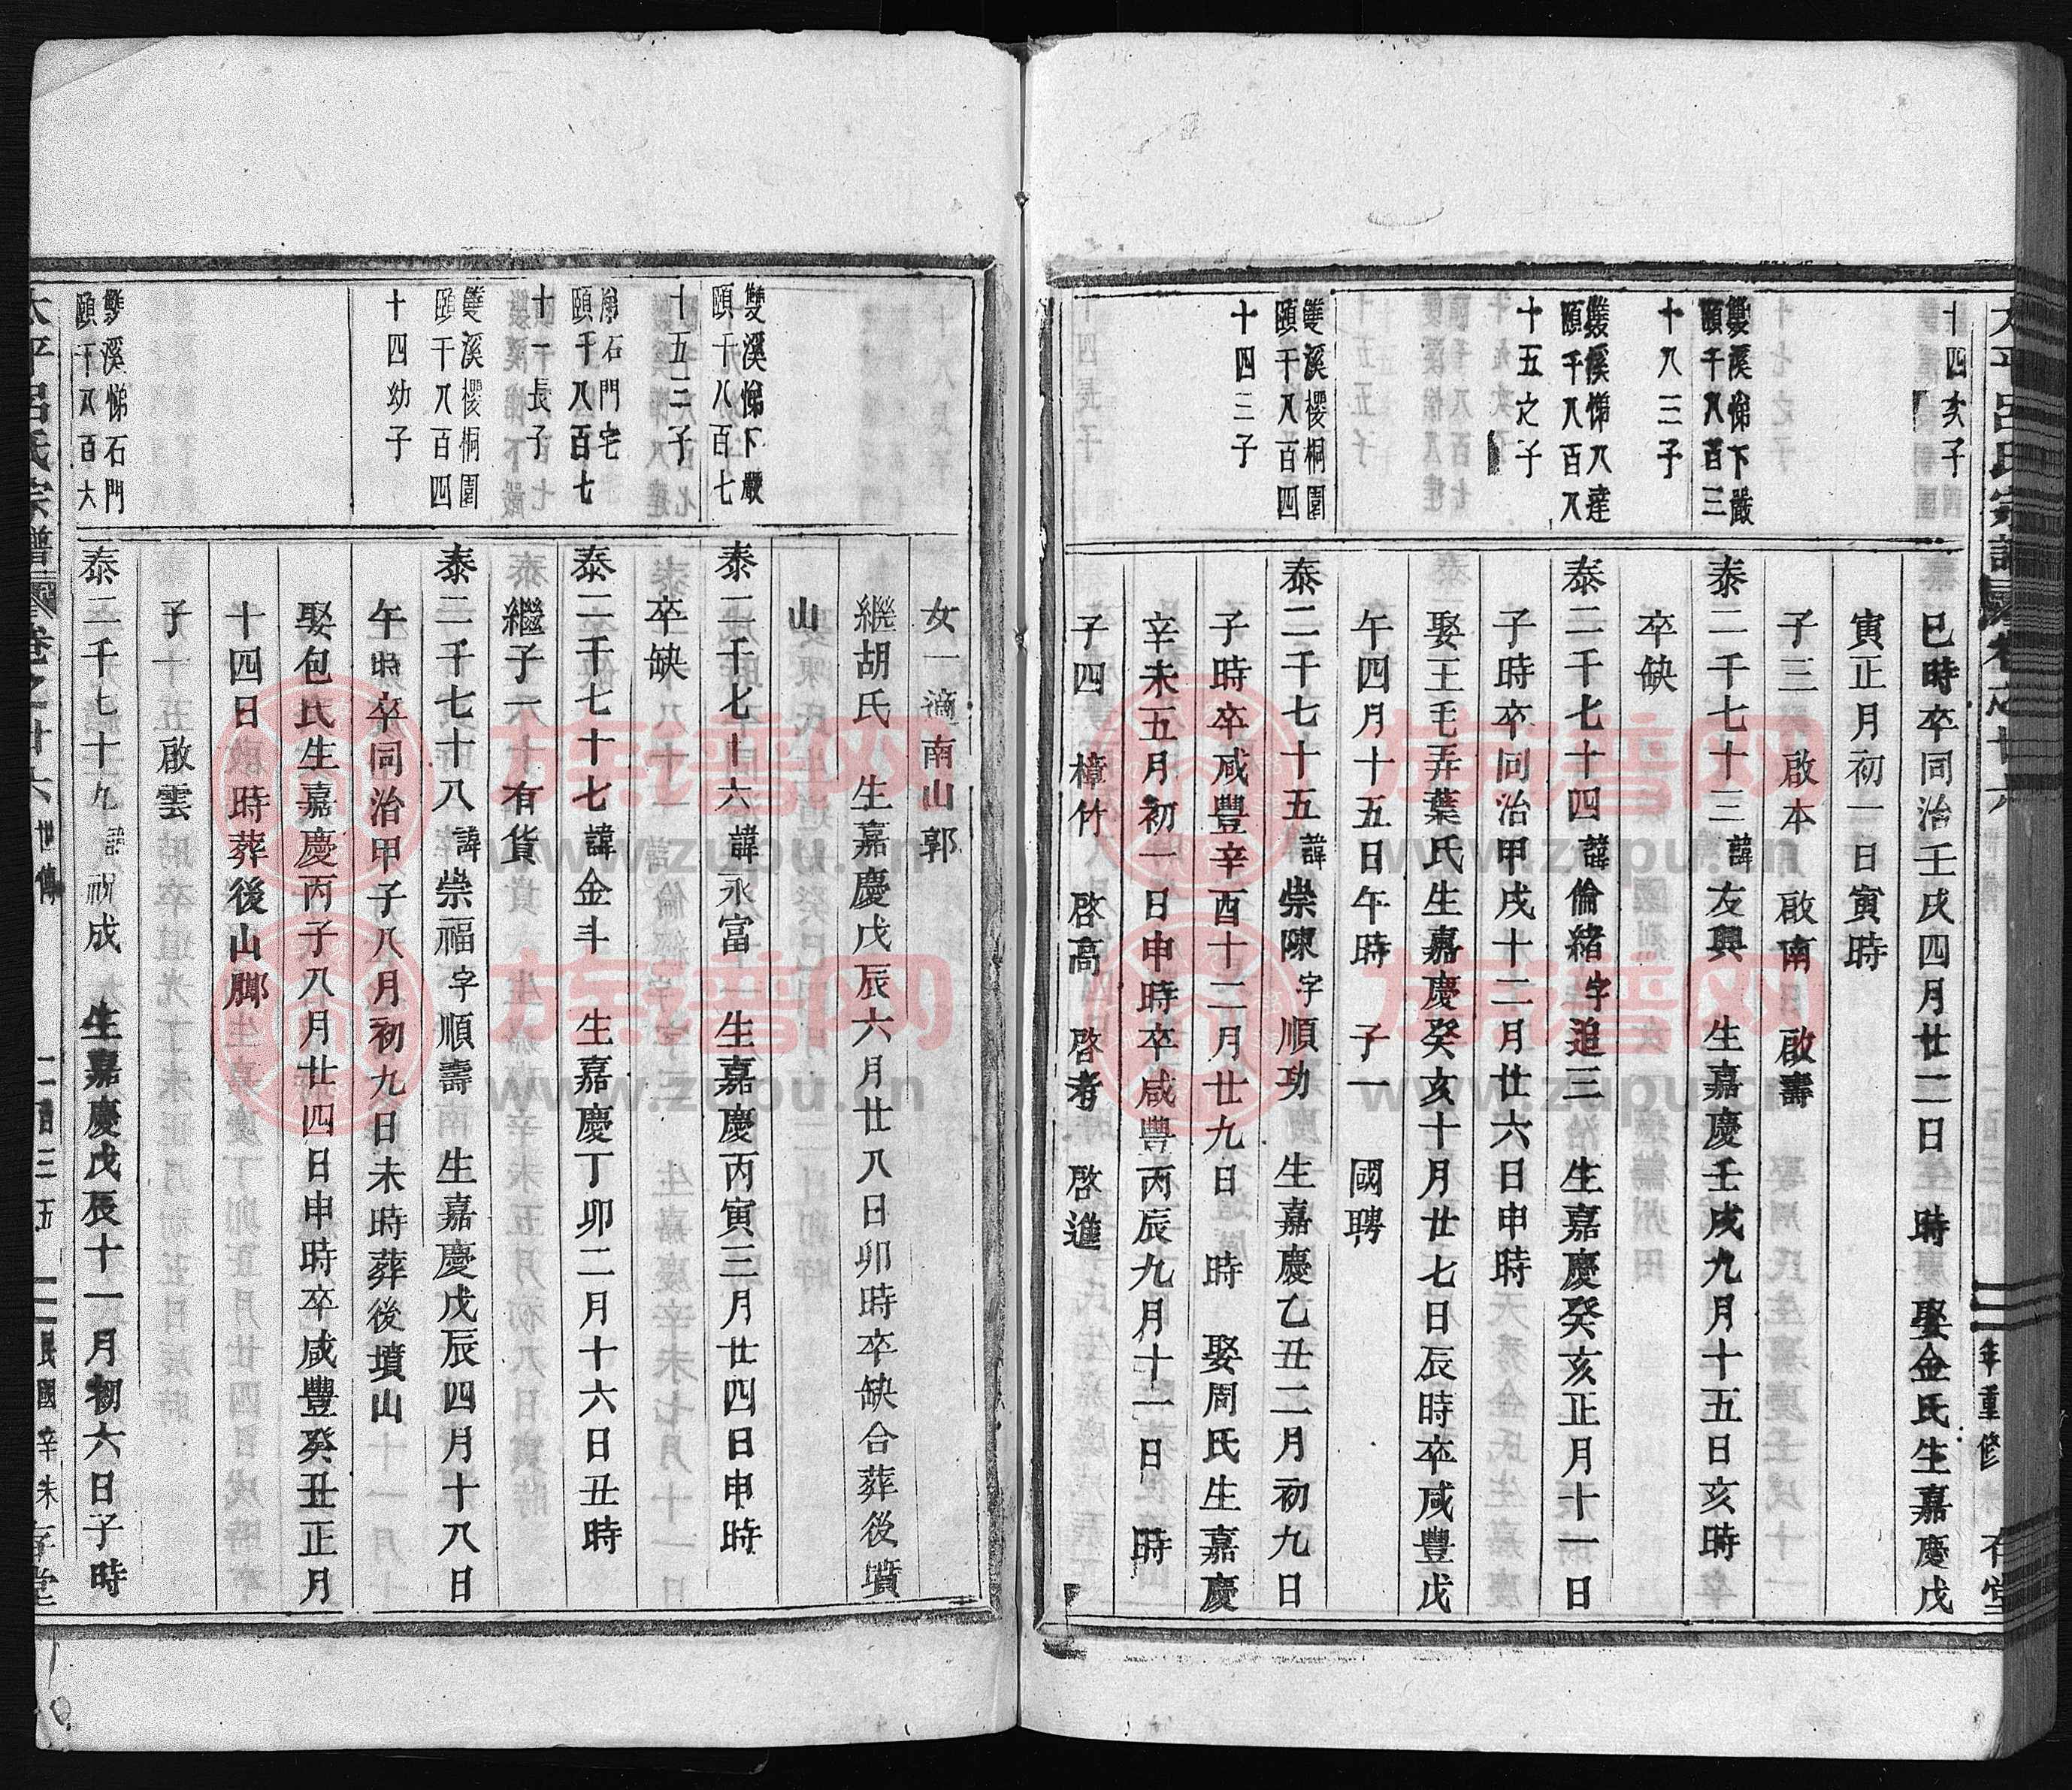 十四亥子
巳時卒同治壬戌四月廿二日 時 娶金氏生嘉慶戊
寅正月初一日寅時
子三 啟本 啟南 啟壽
雙溪悌下嚴
頤千八百三
十八三子
泰二千七十三諱友興 生嘉慶壬戌九月十五日亥時
卒缺
雙溪悌八達
頤千八百八
十五之子
泰二千七十四諱倫緒字追三 生嘉慶癸亥正月十一日
子時卒同治甲戌十二月廿六日申時
娶王毛弄葉氏生嘉慶癸亥十月廿七日辰時卒咸豐戊
午四月十五日午時 子一 國聘
雙溪櫻桐園
頤千八百四
十四三子
泰二千七十五諱崇陳字順功 生嘉慶乙丑二月初九日
子時卒咸豐辛酉十二月廿九日 時 娶周氏生嘉慶
辛未五月初一日申時卒咸豐丙辰九月十一日 時
子四 樟竹 啓高 啓考 啓進
女一適南山郭
繼胡氏 生嘉慶戊辰六月廿八日卯時卒缺合葬後墳
山
雙溪悌下嚴
頤千八百七
十五三子
泰二千七十六諱永富 生嘉慶丙寅三月廿四日申時
卒缺
石門宅
頤千八百七
十一長子
泰二千七十七諱金斗 生嘉慶丁卯二月十六日丑時
繼子一 有貨
雙溪櫻桐園
頤千八百四
十四幼子
泰二千七十八諱崇福字順壽 生嘉慶戊辰四月十八日
午時卒同治甲子八月初九日未時葬後墳山
娶包氏生嘉慶丙子八月廿四日申時卒咸豐癸丑正月
十四日 時葬後山腳
子一 啟雲
雙溪悌石門
頤千八百大
泰二千七十九諱祝成 生嘉慶戊辰十一月初六日子時
太平呂氏宗譜 卷之廿六 世傳 二百三五 民國辛未 存堂
太平呂氏宗譜 卷之廿六 年重修 存堂
族谱网 www.zupu.cn
族谱网 www.zupu.cn
族谱网 www.zupu.cn
族谱网 www.zupu.cn